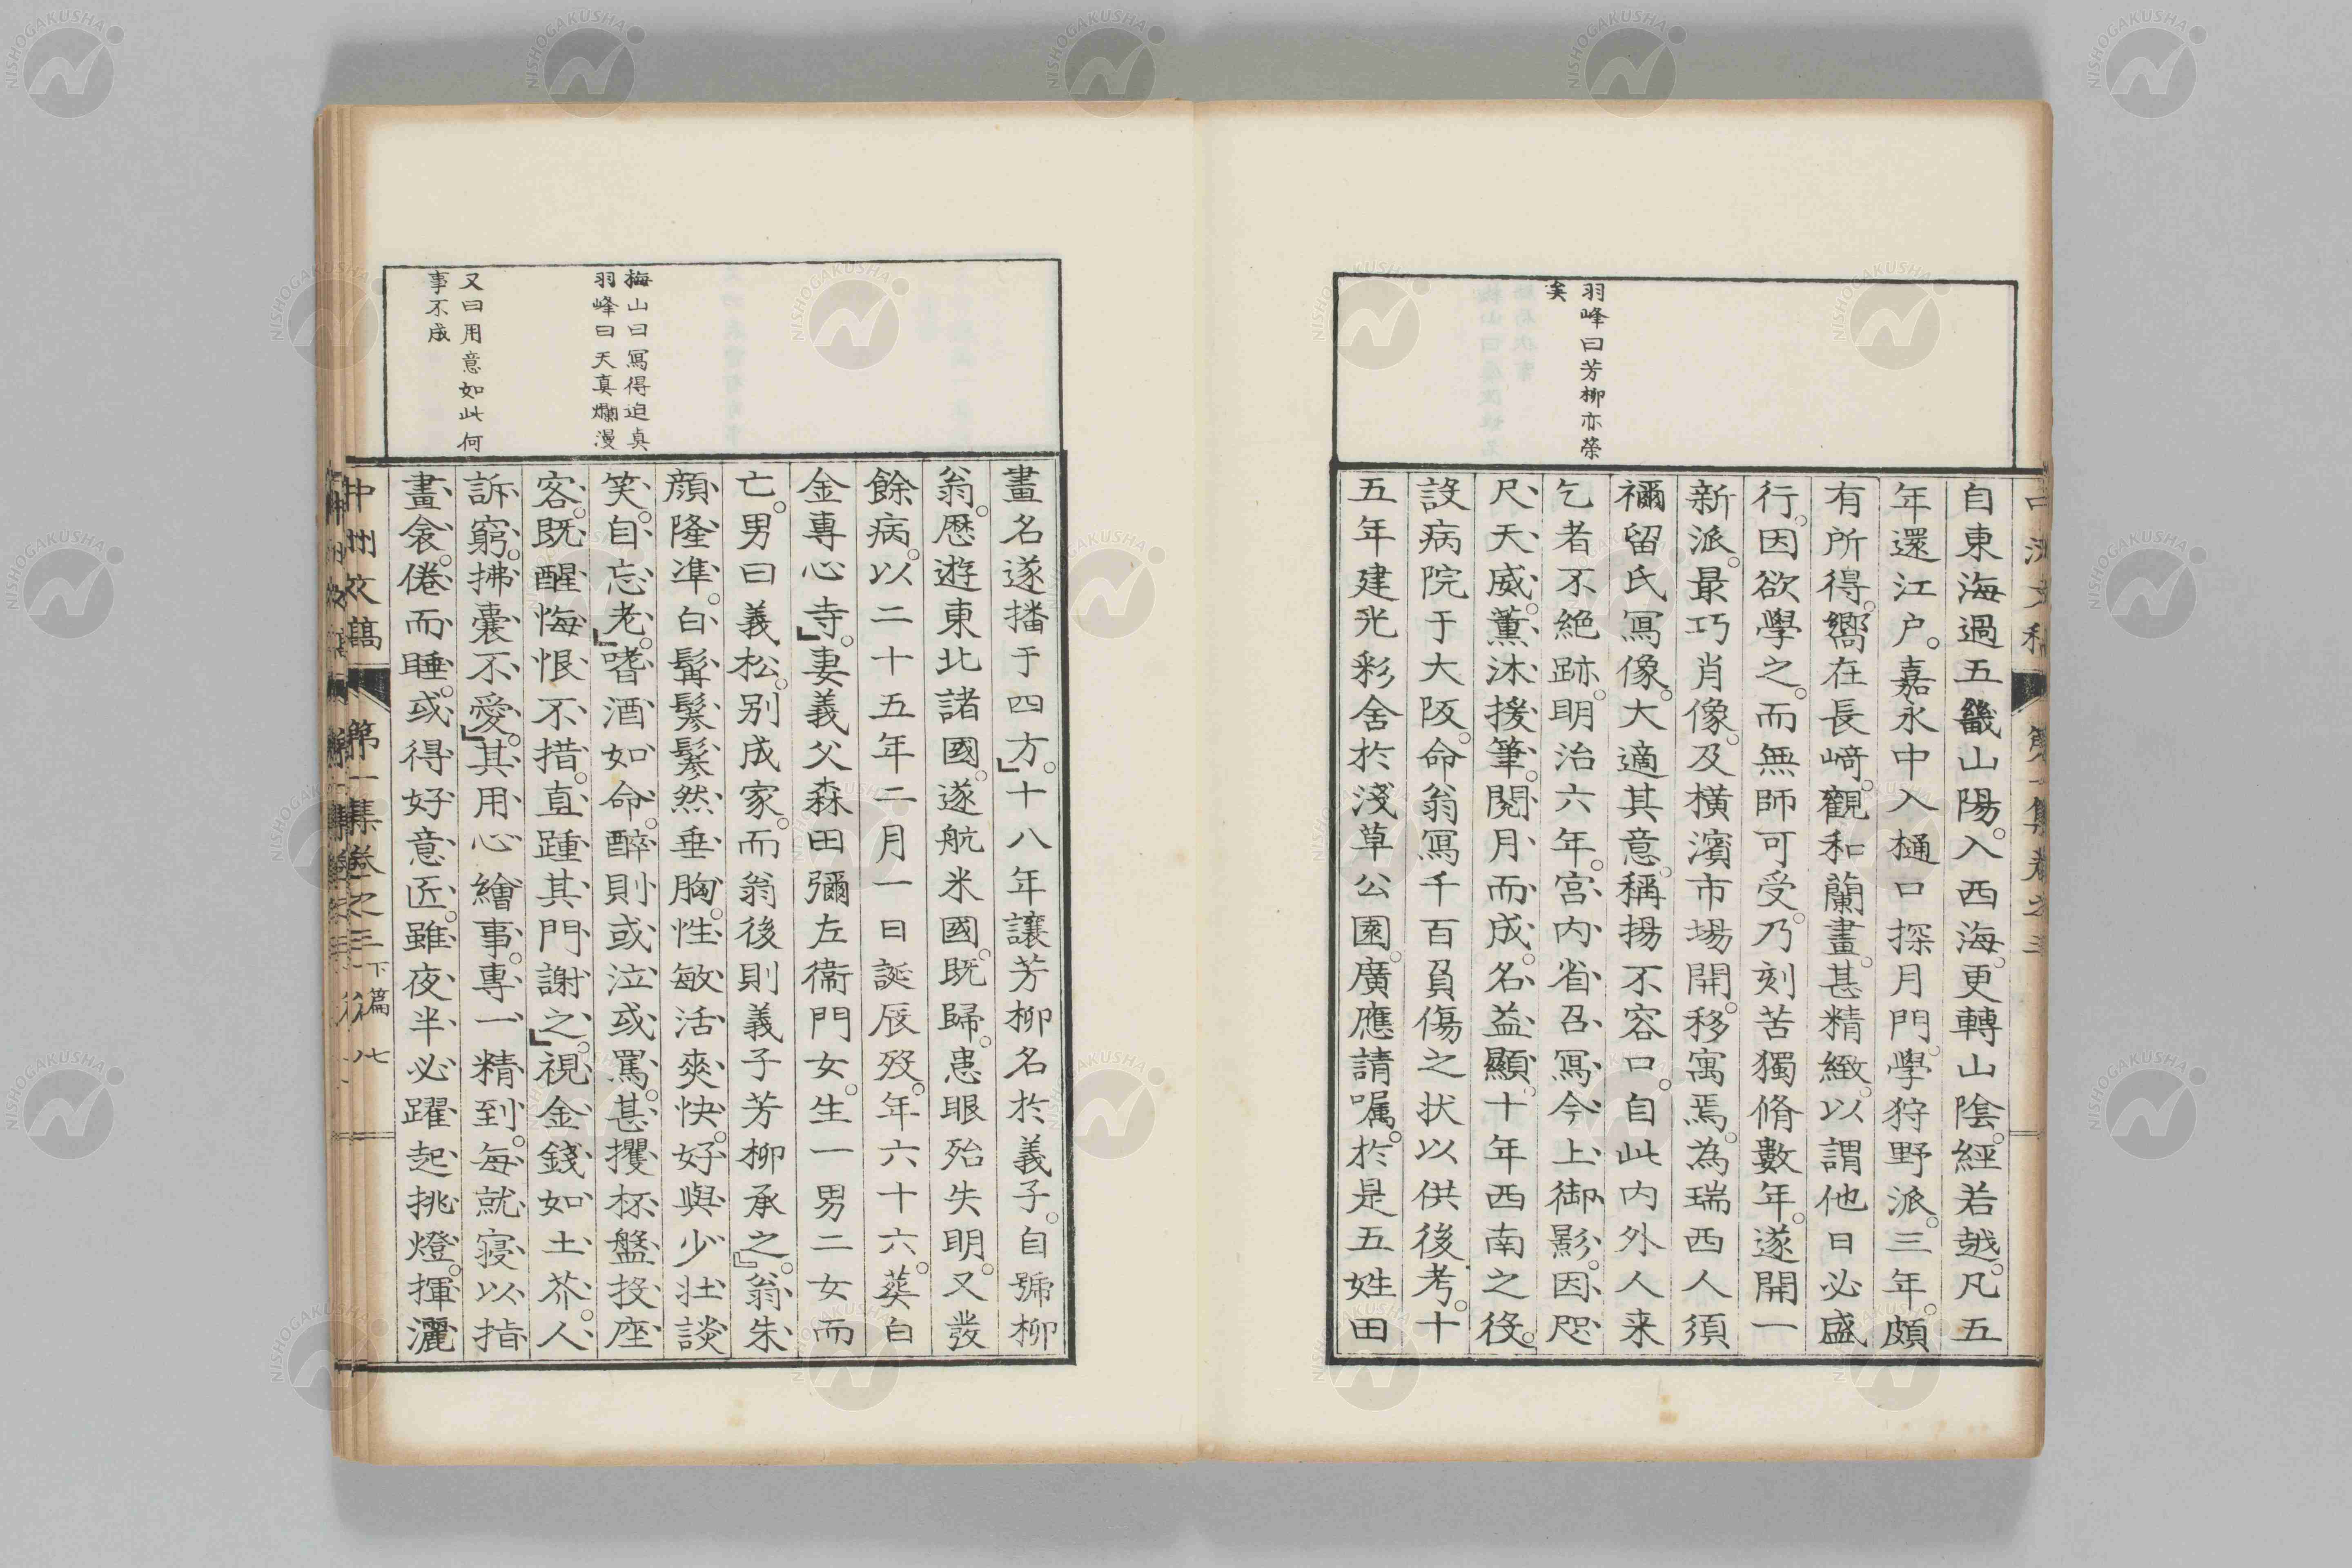 羽峰曰芳柳亦榮
矣
自東海過五畿山陽。入西海。更轉山陰。經若越。凡五
年還江戶。嘉永中入樋口探月門。學狩野派。三年。頗
有所得。嚮在長崎。觀和蘭畫。甚精緻。以謂他日必盛
行。因欲學之。而無師可受。乃刻苦獨脩數年。遂開一
新派。最巧肖像。及橫濱市場開。移寓焉。為瑞西人須
禰留氏寫像。大適其意。稱揚不容口。自此內外人来
乞者不絕跡。明治六年。宮內省召寫今上御影。因咫
尺天威。薰沐援筆。閱月而成。名益顯。十年西南之役。
設病院于大阪。命翁寫千百負傷之状以供後考。十
五年建光彩舍於淺草公園。廣應請嘱。於是五姓田
梅山曰寫得迫真
羽峰曰天真爛漫
又曰用意如此何
事不成
畫名遂播于四方。」十八年讓芳柳名於義子。自號柳
翁。歷遊東北諸國。遂航米國。既歸。患眼殆失明。又發
餘病。以二十五年二月一日誕辰歿。年六十六。葬白
金專心寺。」妻義父森田彌左衞門女。生一男二女而
亡。男曰義松。別成家。而翁後則義子芳柳承之。」翁朱
顏隆準。白髯鬖鬖然垂胸。性敏活爽快。好與少壯談
笑。自忘老。」嗜酒如命。醉則或泣或罵。甚攫杯盤投座
客。既醒悔恨不措。直踵其門謝之。」視金錢如土芥。人
訴窮。拂囊不愛。」其用心繪事。專一精到。每就寢以指
畫衾。倦而睡。或得好意匠。雖夜半必躍起挑燈。揮灑
中州文稿 第一集卷之三 下篇 八七
NISHOGAKUSHA